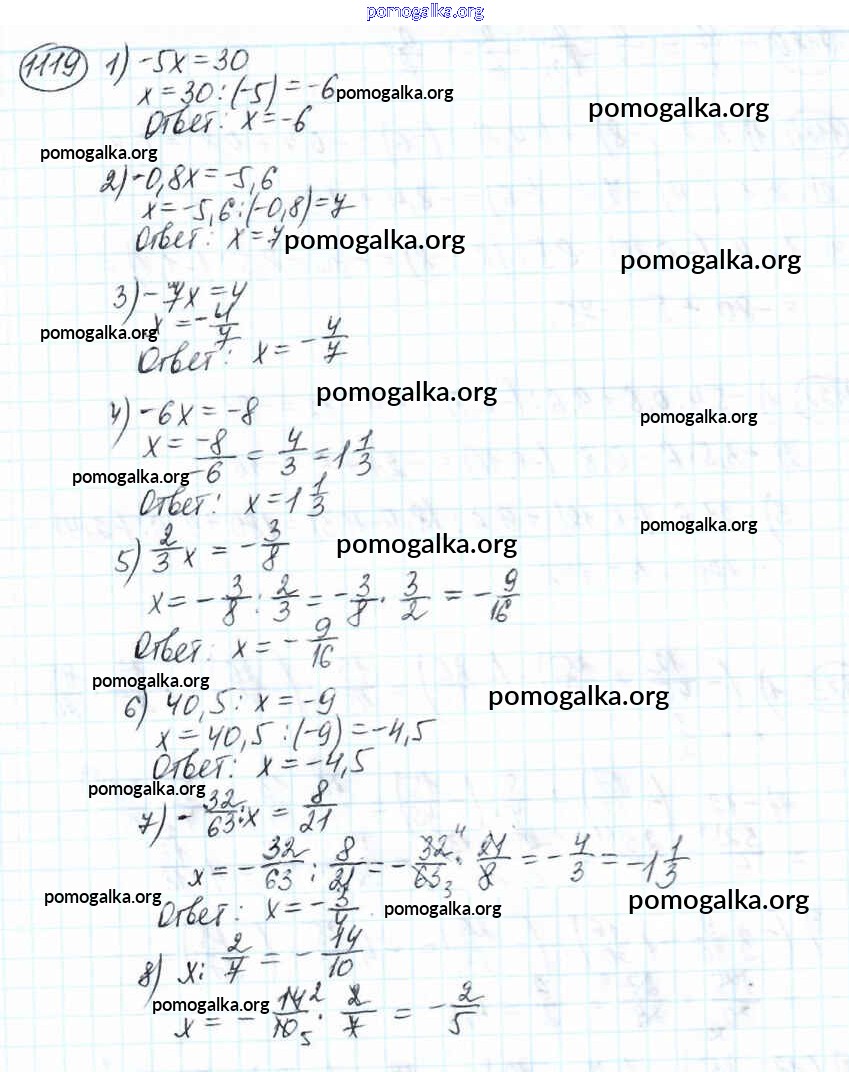 pomogalka.org
1119 1) -5x = 30
x = 30 : (-5) = -6 pomogalka.org
pomogalka.org
Ответ: x = -6
pomogalka.org
2) -0,8x = -5,6
x = -5,6 : (-0,8) = 7
Ответ: x = 7 pomogalka.org
pomogalka.org
3) -7x = 4
pomogalka.org x = -4/7
Ответ: x = -4/7
pomogalka.org
4) -6x = -8
pomogalka.org
x = -8/-6 = 4/3 = 1 1/3
pomogalka.org
Ответ: x = 1 1/3
pomogalka.org
5) 2/3 x = -3/8
pomogalka.org
x = -3/8 : 2/3 = -3/8 · 3/2 = -9/16
Ответ: x = -9/16
pomogalka.org
6) 40,5 : x = -9
pomogalka.org
x = 40,5 : (-9) = -4,5
Ответ: x = -4,5
pomogalka.org
7) -32/63 : x = 8/21
x = -32/63 : 8/21 = -32/63 · 21/8 = -4/3 = -1 1/3
pomogalka.org
Ответ: x = -3/4 pomogalka.org
pomogalka.org
8) x : 2/7 = -14/10
pomogalka.org
x = -14/10 · 2/7 = -2/5